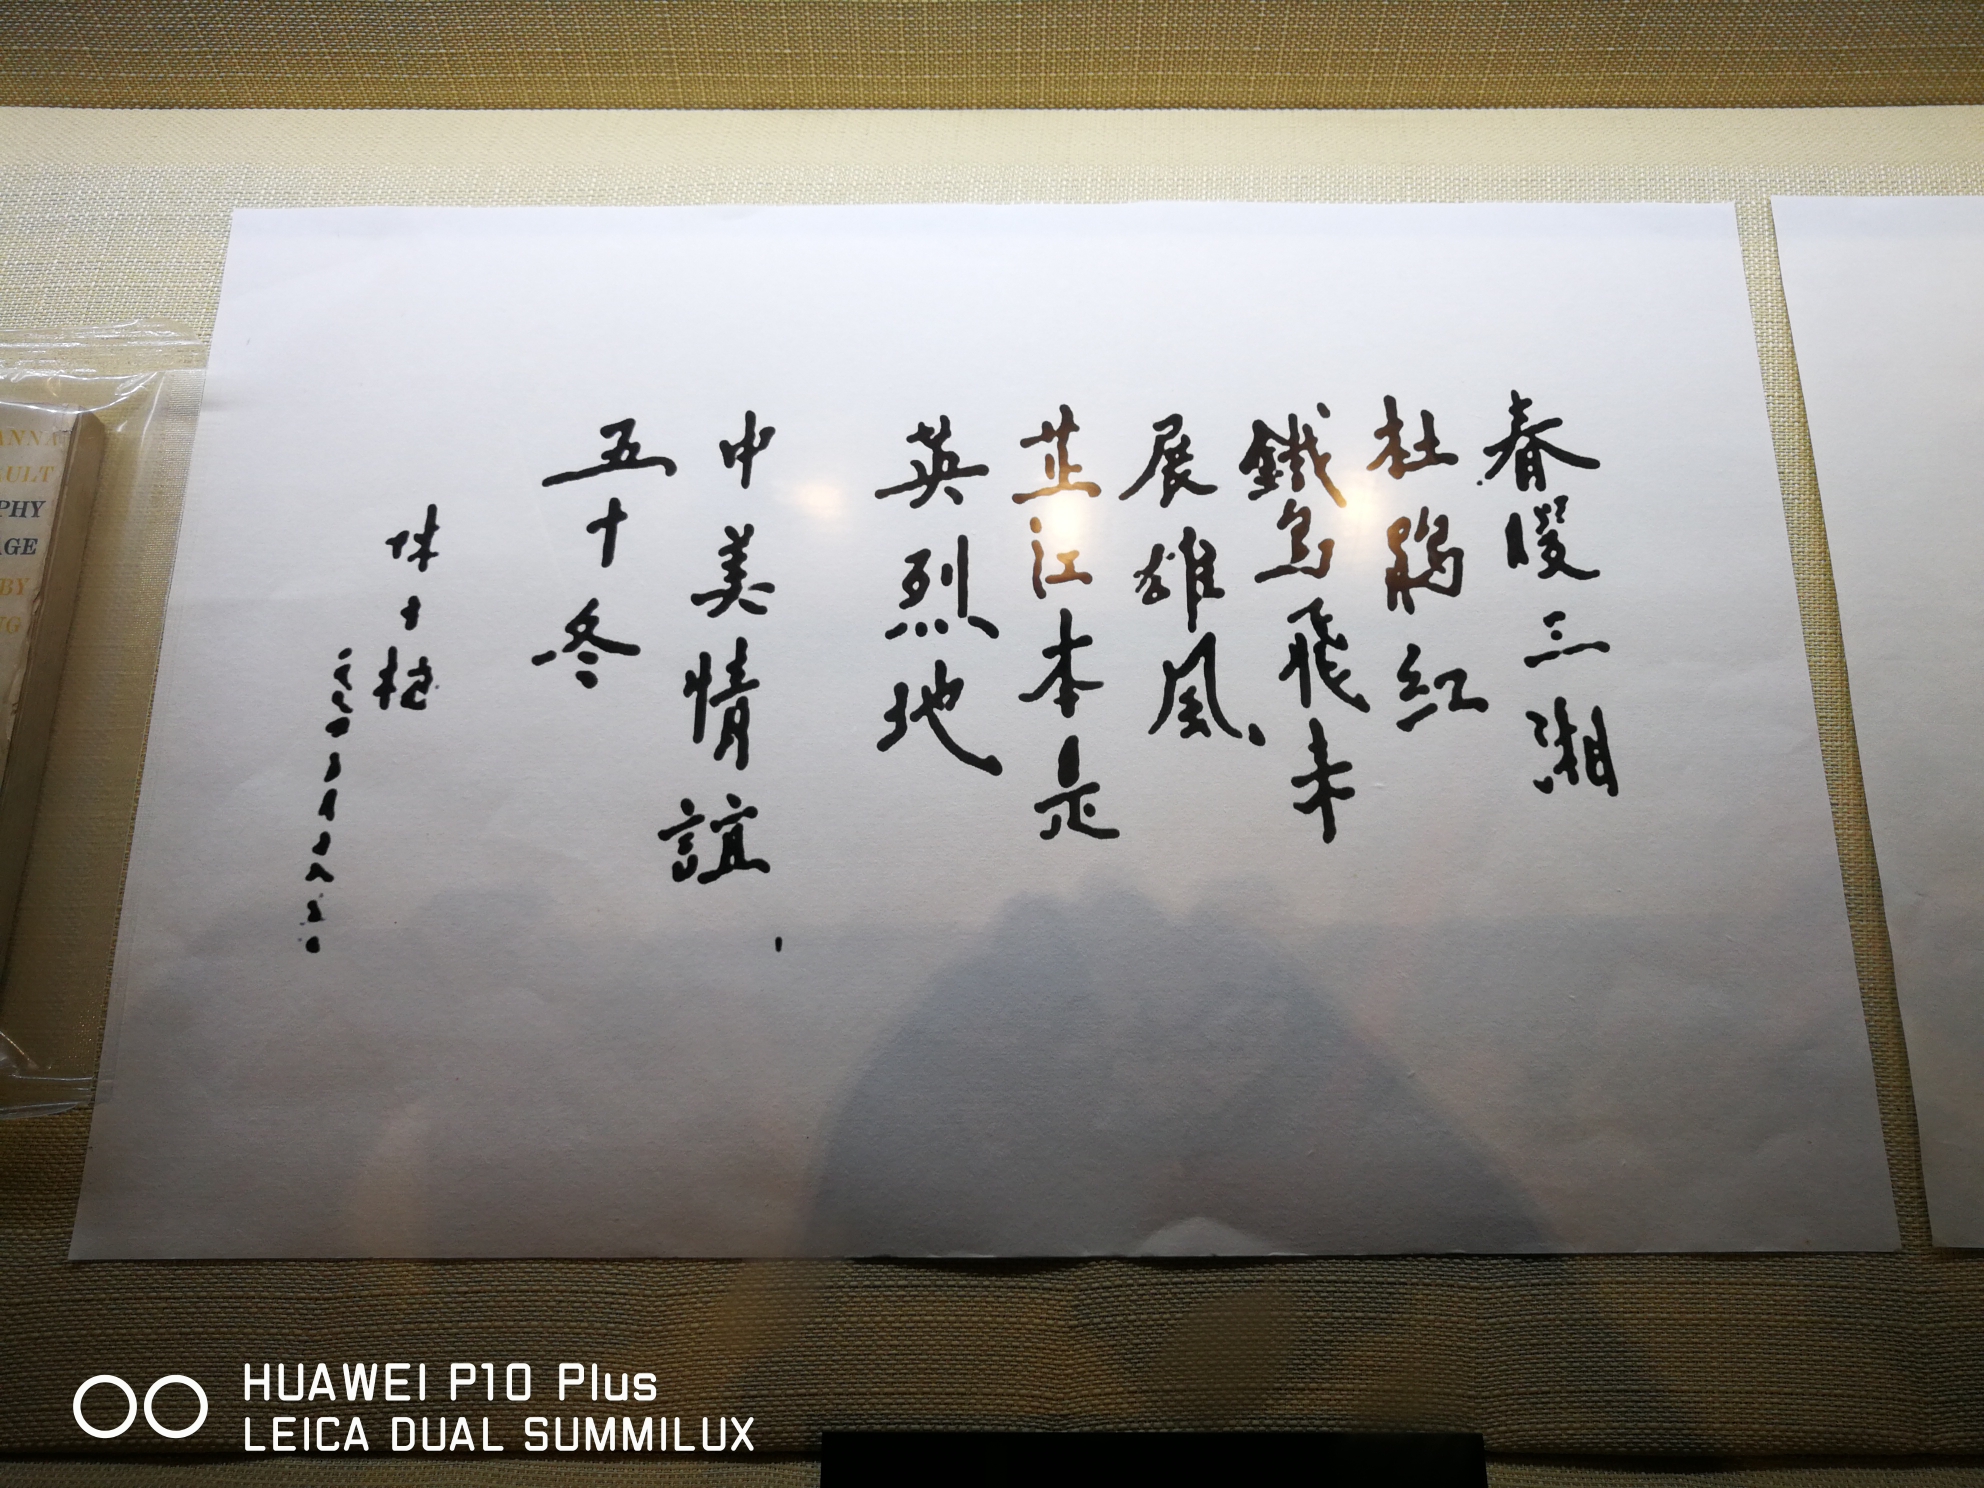 春暖三湘
杜鹃紅
鐵鳥飛来
展雄風
芷江本是
英烈地
中美情誼
五十冬
ANNA
AULT
PHY
AGE
BY
NG
HUAWEI P10 Plus
LEICA DUAL SUMMILUX